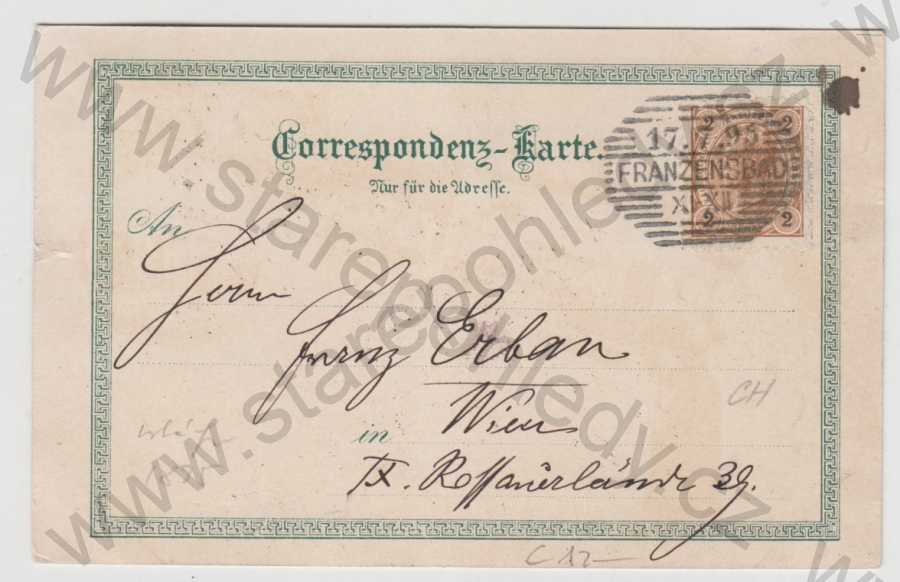 Correspondenz-Karte.
Nur für die Adresse.
2 2
17.7.95
FRANZENSBAD
X XII
2 2
An
Herrn
Franz Erban
Wien
in
IX. Rossauerlände 39.
CH
C 12—
www.starepohledy.cz
www.starepohledy.cz